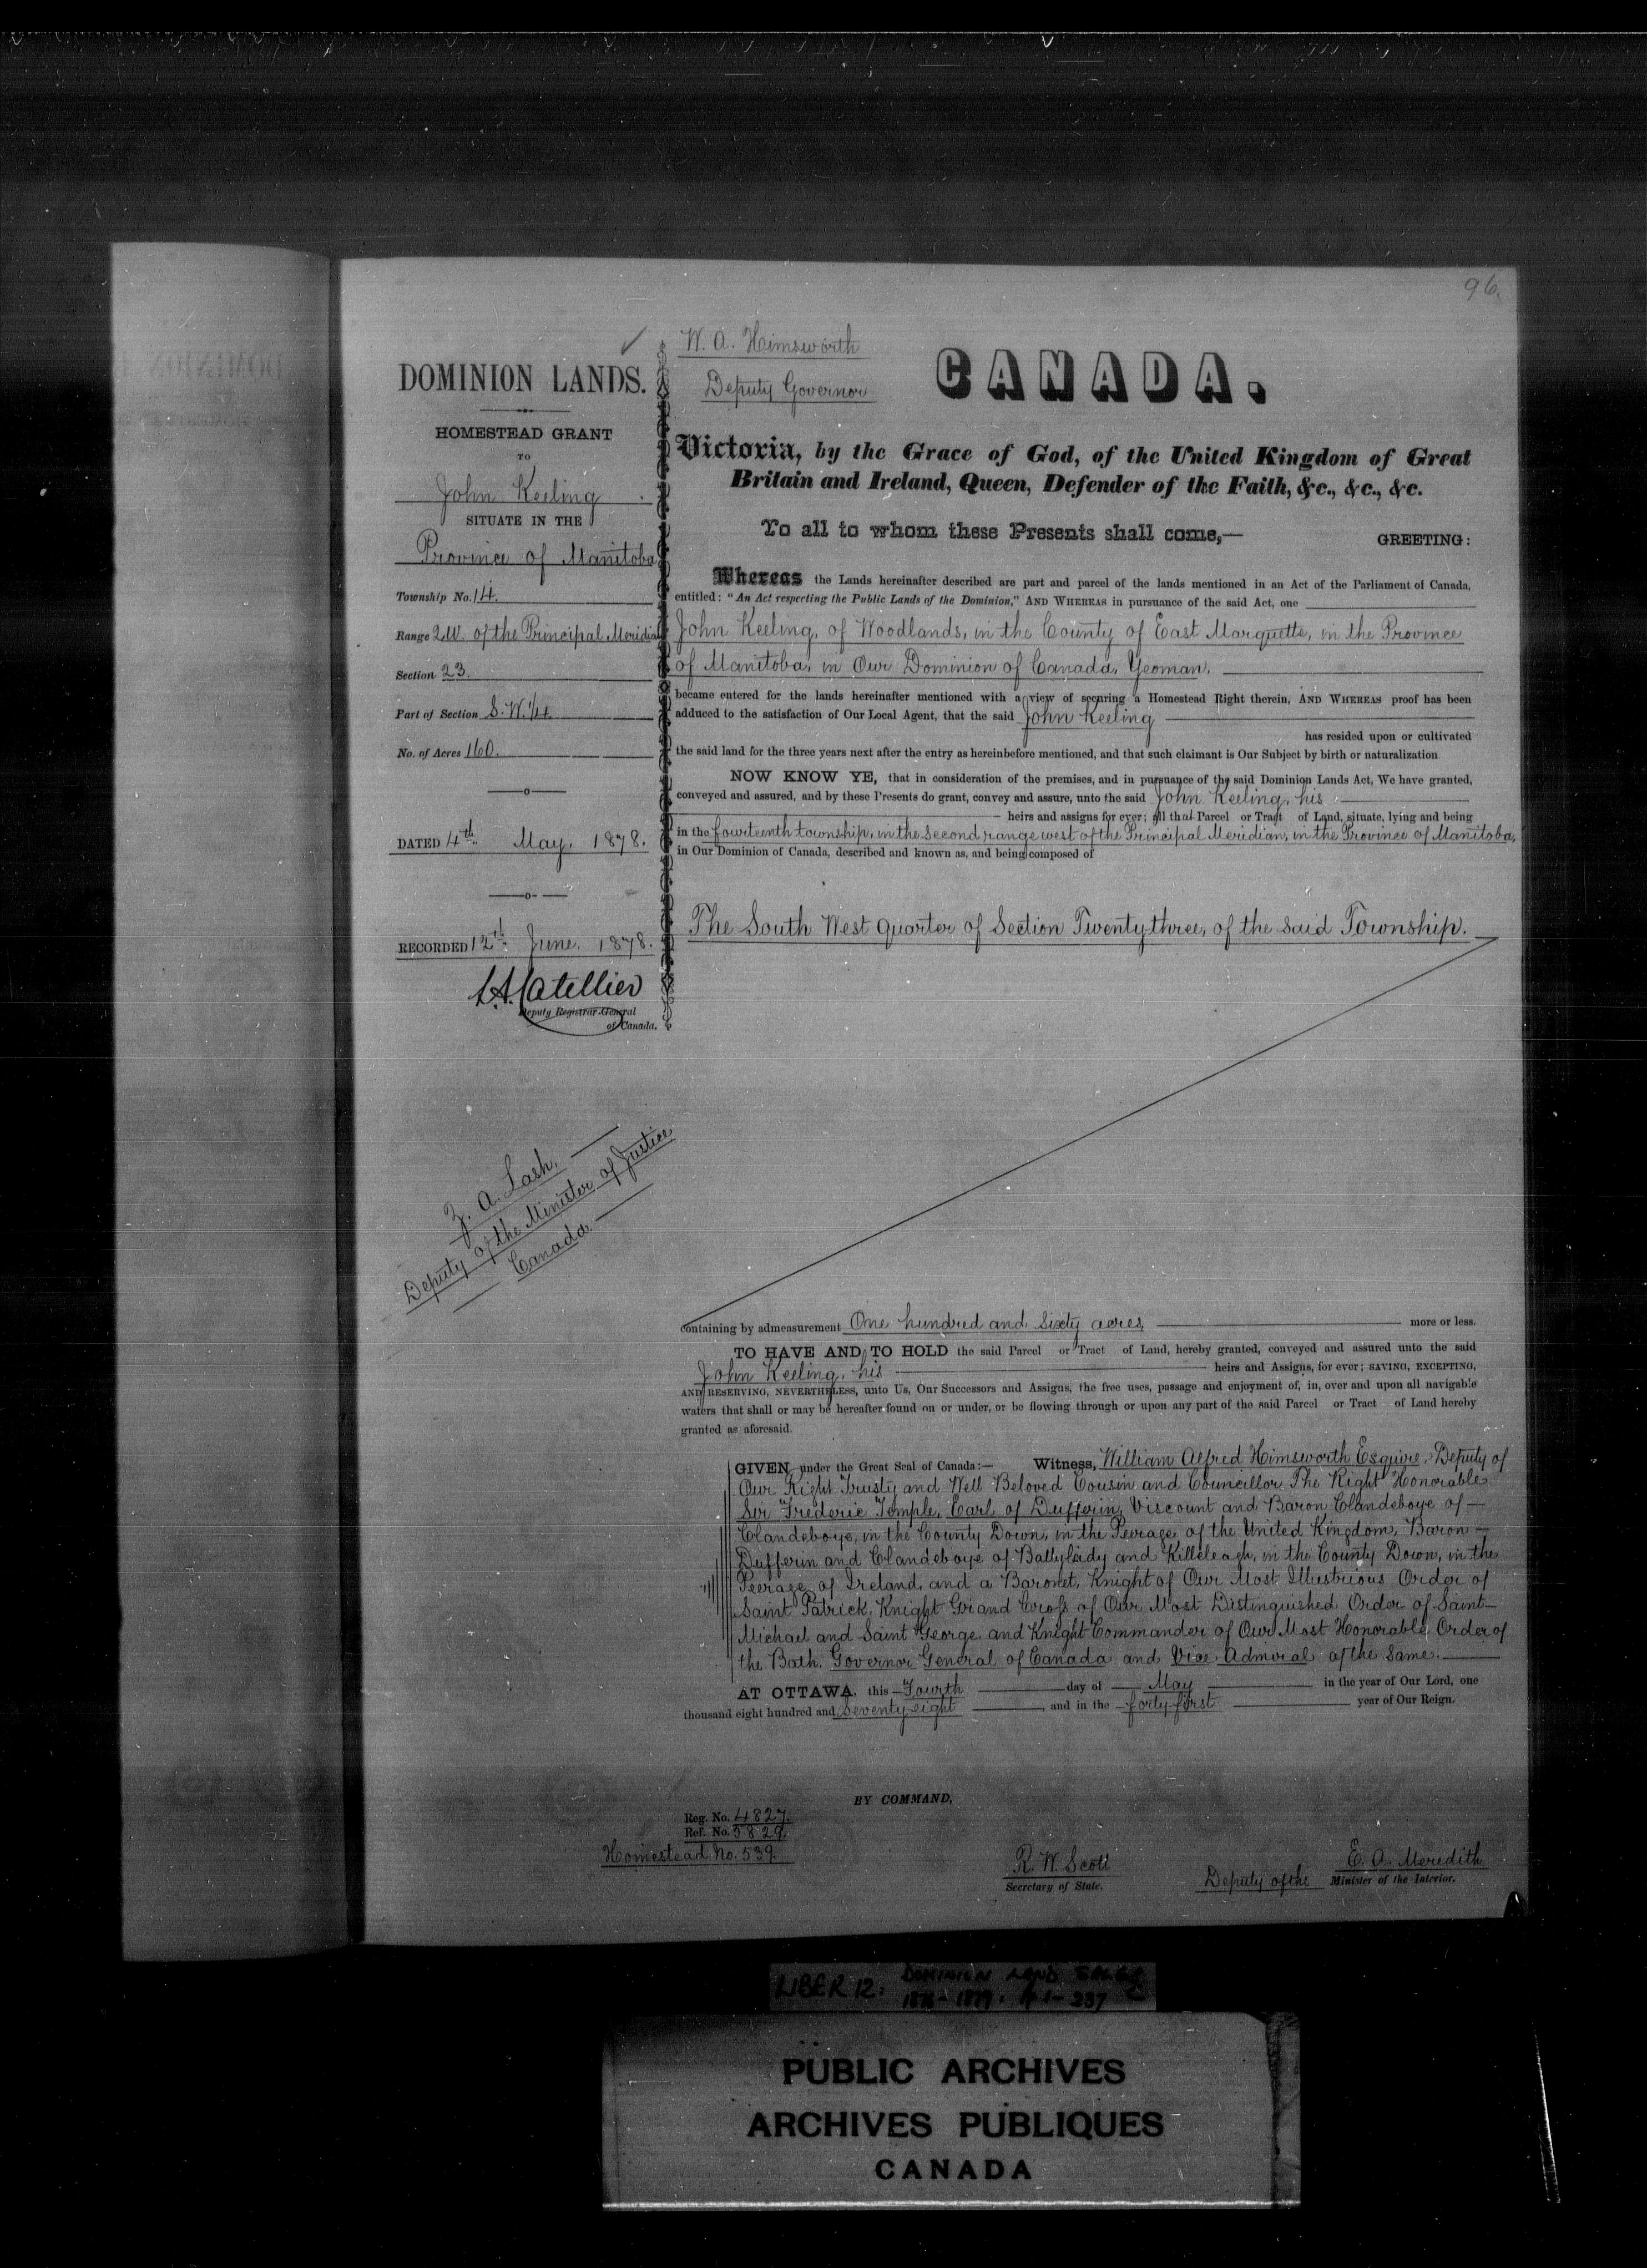 96.
DOMINION LANDS.
HOMESTEAD GRANT
TO
John Keeling
SITUATE IN THE
Province of Manitoba
Township No. 14.
Range 2.W. of the Principal Meridian
Section 23.
Part of Section S.W.1/4.
No. of Acres 160.
DATED 4th. May, 1878.
RECORDED 12th. June, 1878.
Deputy Registrar-General
of Canada.
Z. A. Lash,
Deputy of the Minister of Justice
Canada.
W. A. Himsworth
Deputy Governor
CANADA.
Victoria, by the Grace of God, of the United Kingdom of Great
Britain and Ireland, Queen, Defender of the Faith, &c., &c., &c.
To all to whom these Presents shall come,—
GREETING:
Whereas the Lands hereinafter described are part and parcel of the lands mentioned in an Act of the Parliament of Canada,
entitled: "An Act respecting the Public Lands of the Dominion," AND WHEREAS in pursuance of the said Act, one
John Keeling, of Woodlands, in the County of East Marquette, in the Province
of Manitoba, in Our Dominion of Canada, Yeoman,
became entered for the lands hereinafter mentioned with a view of securing a Homestead Right therein, AND WHEREAS proof has been
adduced to the satisfaction of Our Local Agent, that the said John Keeling
has resided upon or cultivated
the said land for the three years next after the entry as hereinbefore mentioned, and that such claimant is Our Subject by birth or naturalization
NOW KNOW YE, that in consideration of the premises, and in pursuance of the said Dominion Lands Act, We have granted,
conveyed and assured, and by these Presents do grant, convey and assure, unto the said John Keeling, his
heirs and assigns for ever; all that Parcel or Tract of Land, situate, lying and being
in the fourteenth township, in the second range west of the Principal Meridian, in the Province of Manitoba,
in Our Dominion of Canada, described and known as, and being composed of
The South West quarter of Section Twenty three, of the said Township.
containing by admeasurement One hundred and Sixty acres more or less.
TO HAVE AND TO HOLD the said Parcel or Tract of Land, hereby granted, conveyed and assured unto the said
John Keeling, his heirs and Assigns, for ever; SAVING, EXCEPTING,
AND RESERVING, NEVERTHELESS, unto Us, Our Successors and Assigns, the free uses, passage and enjoyment of, in, over and upon all navigable
waters that shall or may be hereafter found on or under, or be flowing through or upon any part of the said Parcel or Tract of Land hereby
granted as aforesaid.
GIVEN under the Great Seal of Canada:— Witness, William Alfred Himsworth Esquire, Deputy of
Our Right Trusty and Well Beloved Cousin and Councillor The Right Honorable
Sir Frederic Temple, Earl of Dufferin, Viscount and Baron Clandeboye of —
Clandeboye, in the County Down, in the Peerage of the United Kingdom, Baron —
Dufferin and Clandeboye of Ballyleidy and Killeleagh, in the County Down, in the
Peerage of Ireland, and a Baronet, Knight of Our Most Illustrious Order of
Saint Patrick, Knight Grand Cross of Our Most Distinguished Order of Saint —
Michael and Saint George and Knight Commander of Our Most Honorable Order of
the Bath. Governor General of Canada and Vice Admiral of the same.
AT OTTAWA, this Fourth day of May in the year of Our Lord, one
thousand eight hundred and seventy eight and in the forty-first year of Our Reign.
BY COMMAND,
Reg. No. 4827.
Ref. No. 5829.
Homestead No. 539.
R. W. Scott
Secretary of State.
E. A. Meredith
Deputy of the Minister of the Interior.
LIBER 12: DOMINION LAND SALES
1878-1879.
PUBLIC ARCHIVES
ARCHIVES PUBLIQUES
CANADA